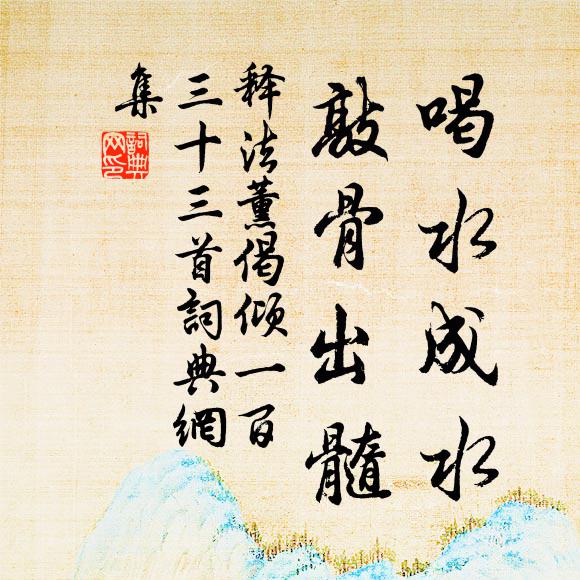 喝水成水
敲骨出髓
释法薰偈倾一百
三十三首詞典網
集
詞典
网印